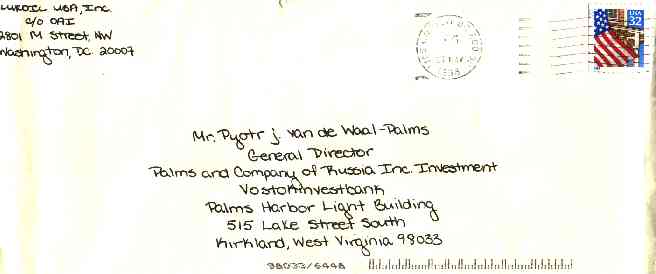 LUKOIL USA, Inc.
c/o OAI
2801 M Street, NW
Washington, DC 20007
1998
USA
32
Mr. Pyotr J. van de Waal-Palms
General Director
Palms and Company of Russia Inc. Investment
Vostokinvestbank
Palms Harbor Light Building
515 Lake Street South
Kirkland, West Virginia 98033
98033/6448